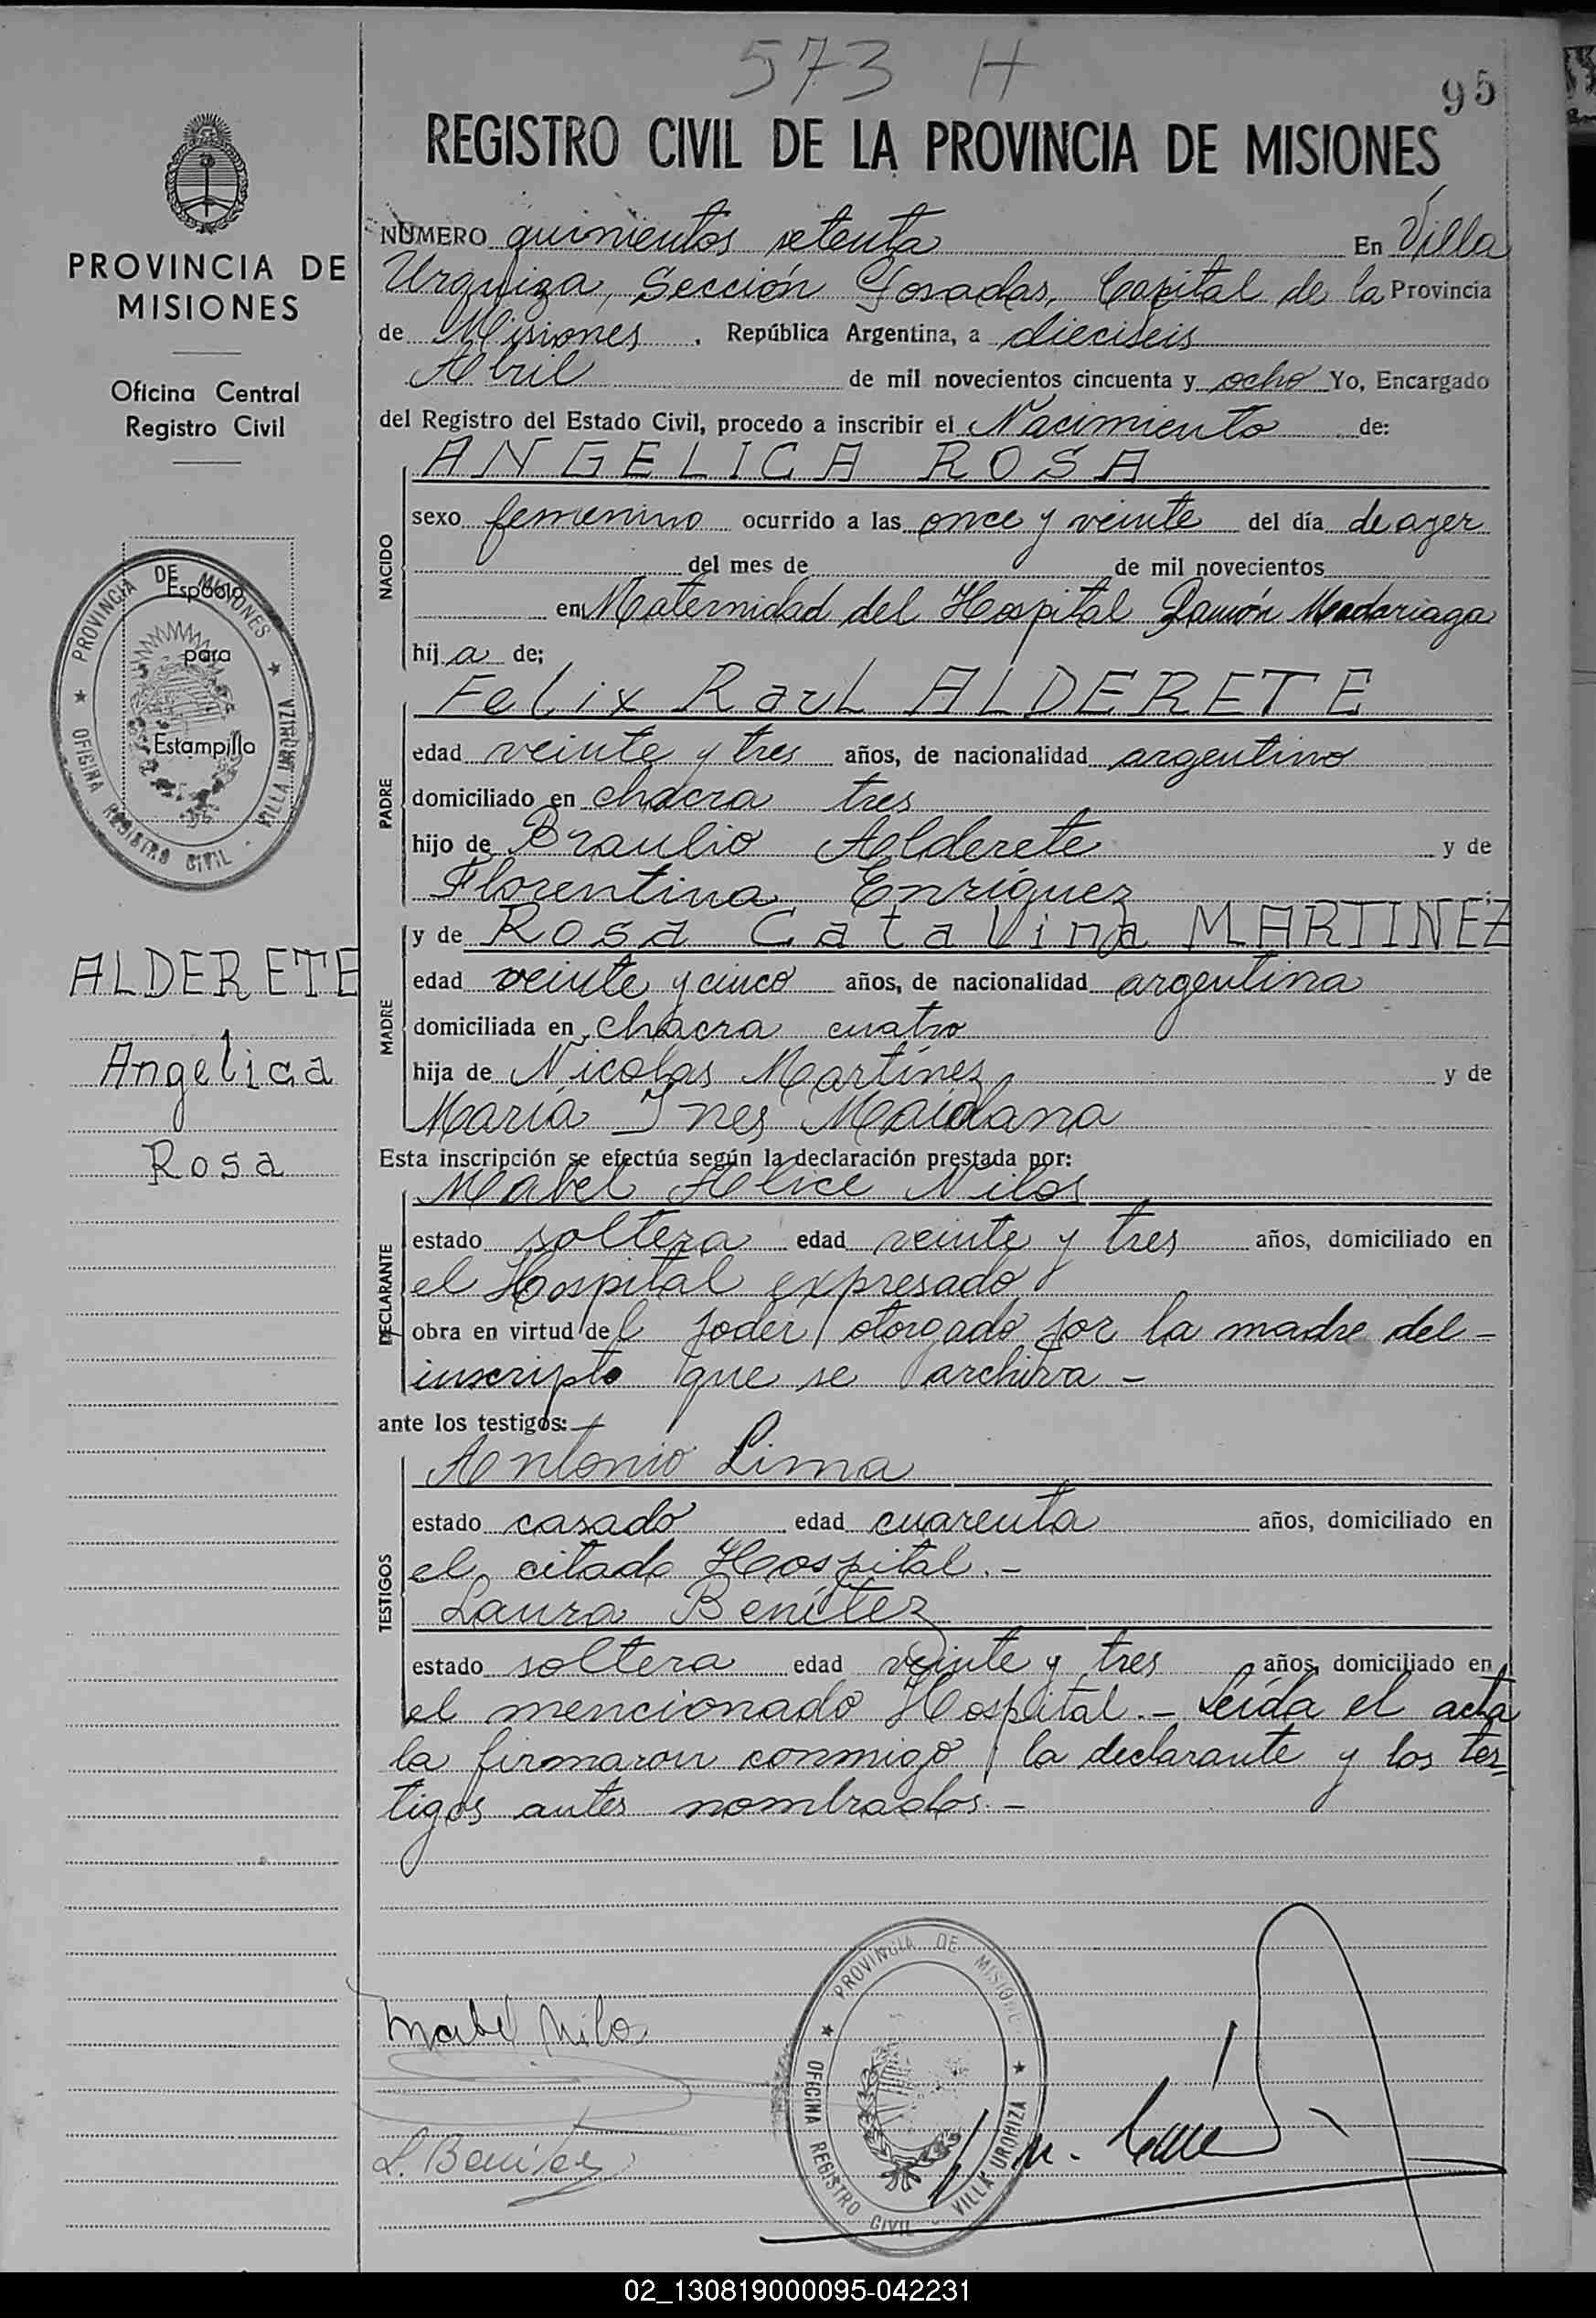 573 H
95
REGISTRO CIVIL DE LA PROVINCIA DE MISIONES
PROVINCIA DE
MISIONES
Oficina Central
Registro Civil
PROVINCIA DE MISIONES
OFICINA REGISTRO CIVIL - VILLA URQUIZA
Espacio
para
Estampilla
ALDERETE
Angelica
Rosa
NUMERO quinientos setenta En Villa
Urquiza, Sección Posadas, Capital de la Provincia
de Misiones. República Argentina, a dieciseis
Abril de mil novecientos cincuenta y ocho Yo, Encargado
del Registro del Estado Civil, procedo a inscribir el Nacimiento de:
ANGELICA ROSA
NACIDO
sexo femenino ocurrido a las once y veinte del día de ayer
del mes de de mil novecientos
en Maternidad del Hospital Ramón Madariaga
hija de;
Felix Raul ALDERETE
PADRE
edad veinte y tres años, de nacionalidad argentino
domiciliado en chacra tres
hijo de Braulio Alderete y de
Florentina Enríquez;
y de Rosa Catalina MARTINEZ
MADRE
edad veinte y cinco años, de nacionalidad argentina
domiciliada en chacra cuatro
hija de Nicolas Martínez y de
María Ines Maidana
Esta inscripción se efectúa según la declaración prestada por:
Mabel Alice Nilos
DECLARANTE
estado soltera edad veinte y tres años, domiciliado en
el Hospital expresado
obra en virtud del poder otorgado por la madre del -
inscripto que se archiva -
ante los testigos: -
Antonio Lima
TESTIGOS
estado casado edad cuarenta años, domiciliado en
el citado Hospital. -
Laura Benítez
estado soltera edad veinte y tres años, domiciliado en
el mencionado Hospital. - Leída el acta
la firmaron conmigo la declarante y los tes=
tigos antes nombrados. -
Mabel Nilo
L. Benitez
PROVINCIA DE MISIONES
OFICINA REGISTRO CIVIL - VILLA URQUIZA
02_130819000095-042231